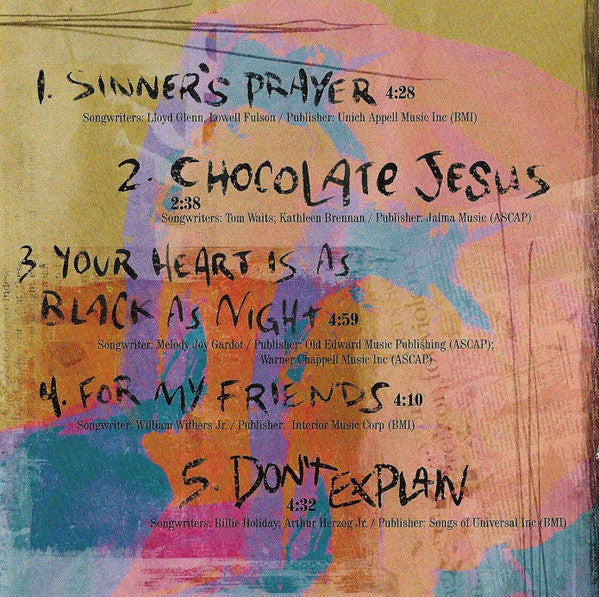 1. SINNER'S PRAYER 4:28
Songwriters: Lloyd Glenn, Lowell Fulson / Publisher: Unich Appell Music Inc (BMI)
2. CHOCOLATE JESUS
2:38
Songwriters: Tom Waits; Kathleen Brennan / Publisher: Jalma Music (ASCAP)
3. YOUR HEART IS AS
BLACK AS NIGHT 4:59
Songwriter: Melody Joy Gardot / Publisher: Old Edward Music Publishing (ASCAP);
Warner Chappell Music Inc (ASCAP)
4. FOR MY FRIENDS 4:10
Songwriter: William Withers Jr. / Publisher: Interior Music Corp (BMI)
5. DON'T EXPLAIN
4:32
Songwriters: Billie Holiday; Arthur Herzog Jr. / Publisher: Songs of Universal Inc (BMI)